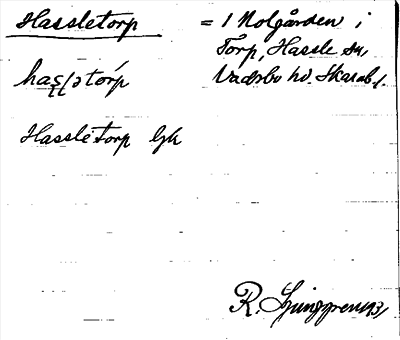 Hassletorp = 1 Nolgården i
Torp, Hassle sn
Vadsbo hd. Skarab. l.
hassletorp
Hassletorp Gk
R. Ljunggren 1931